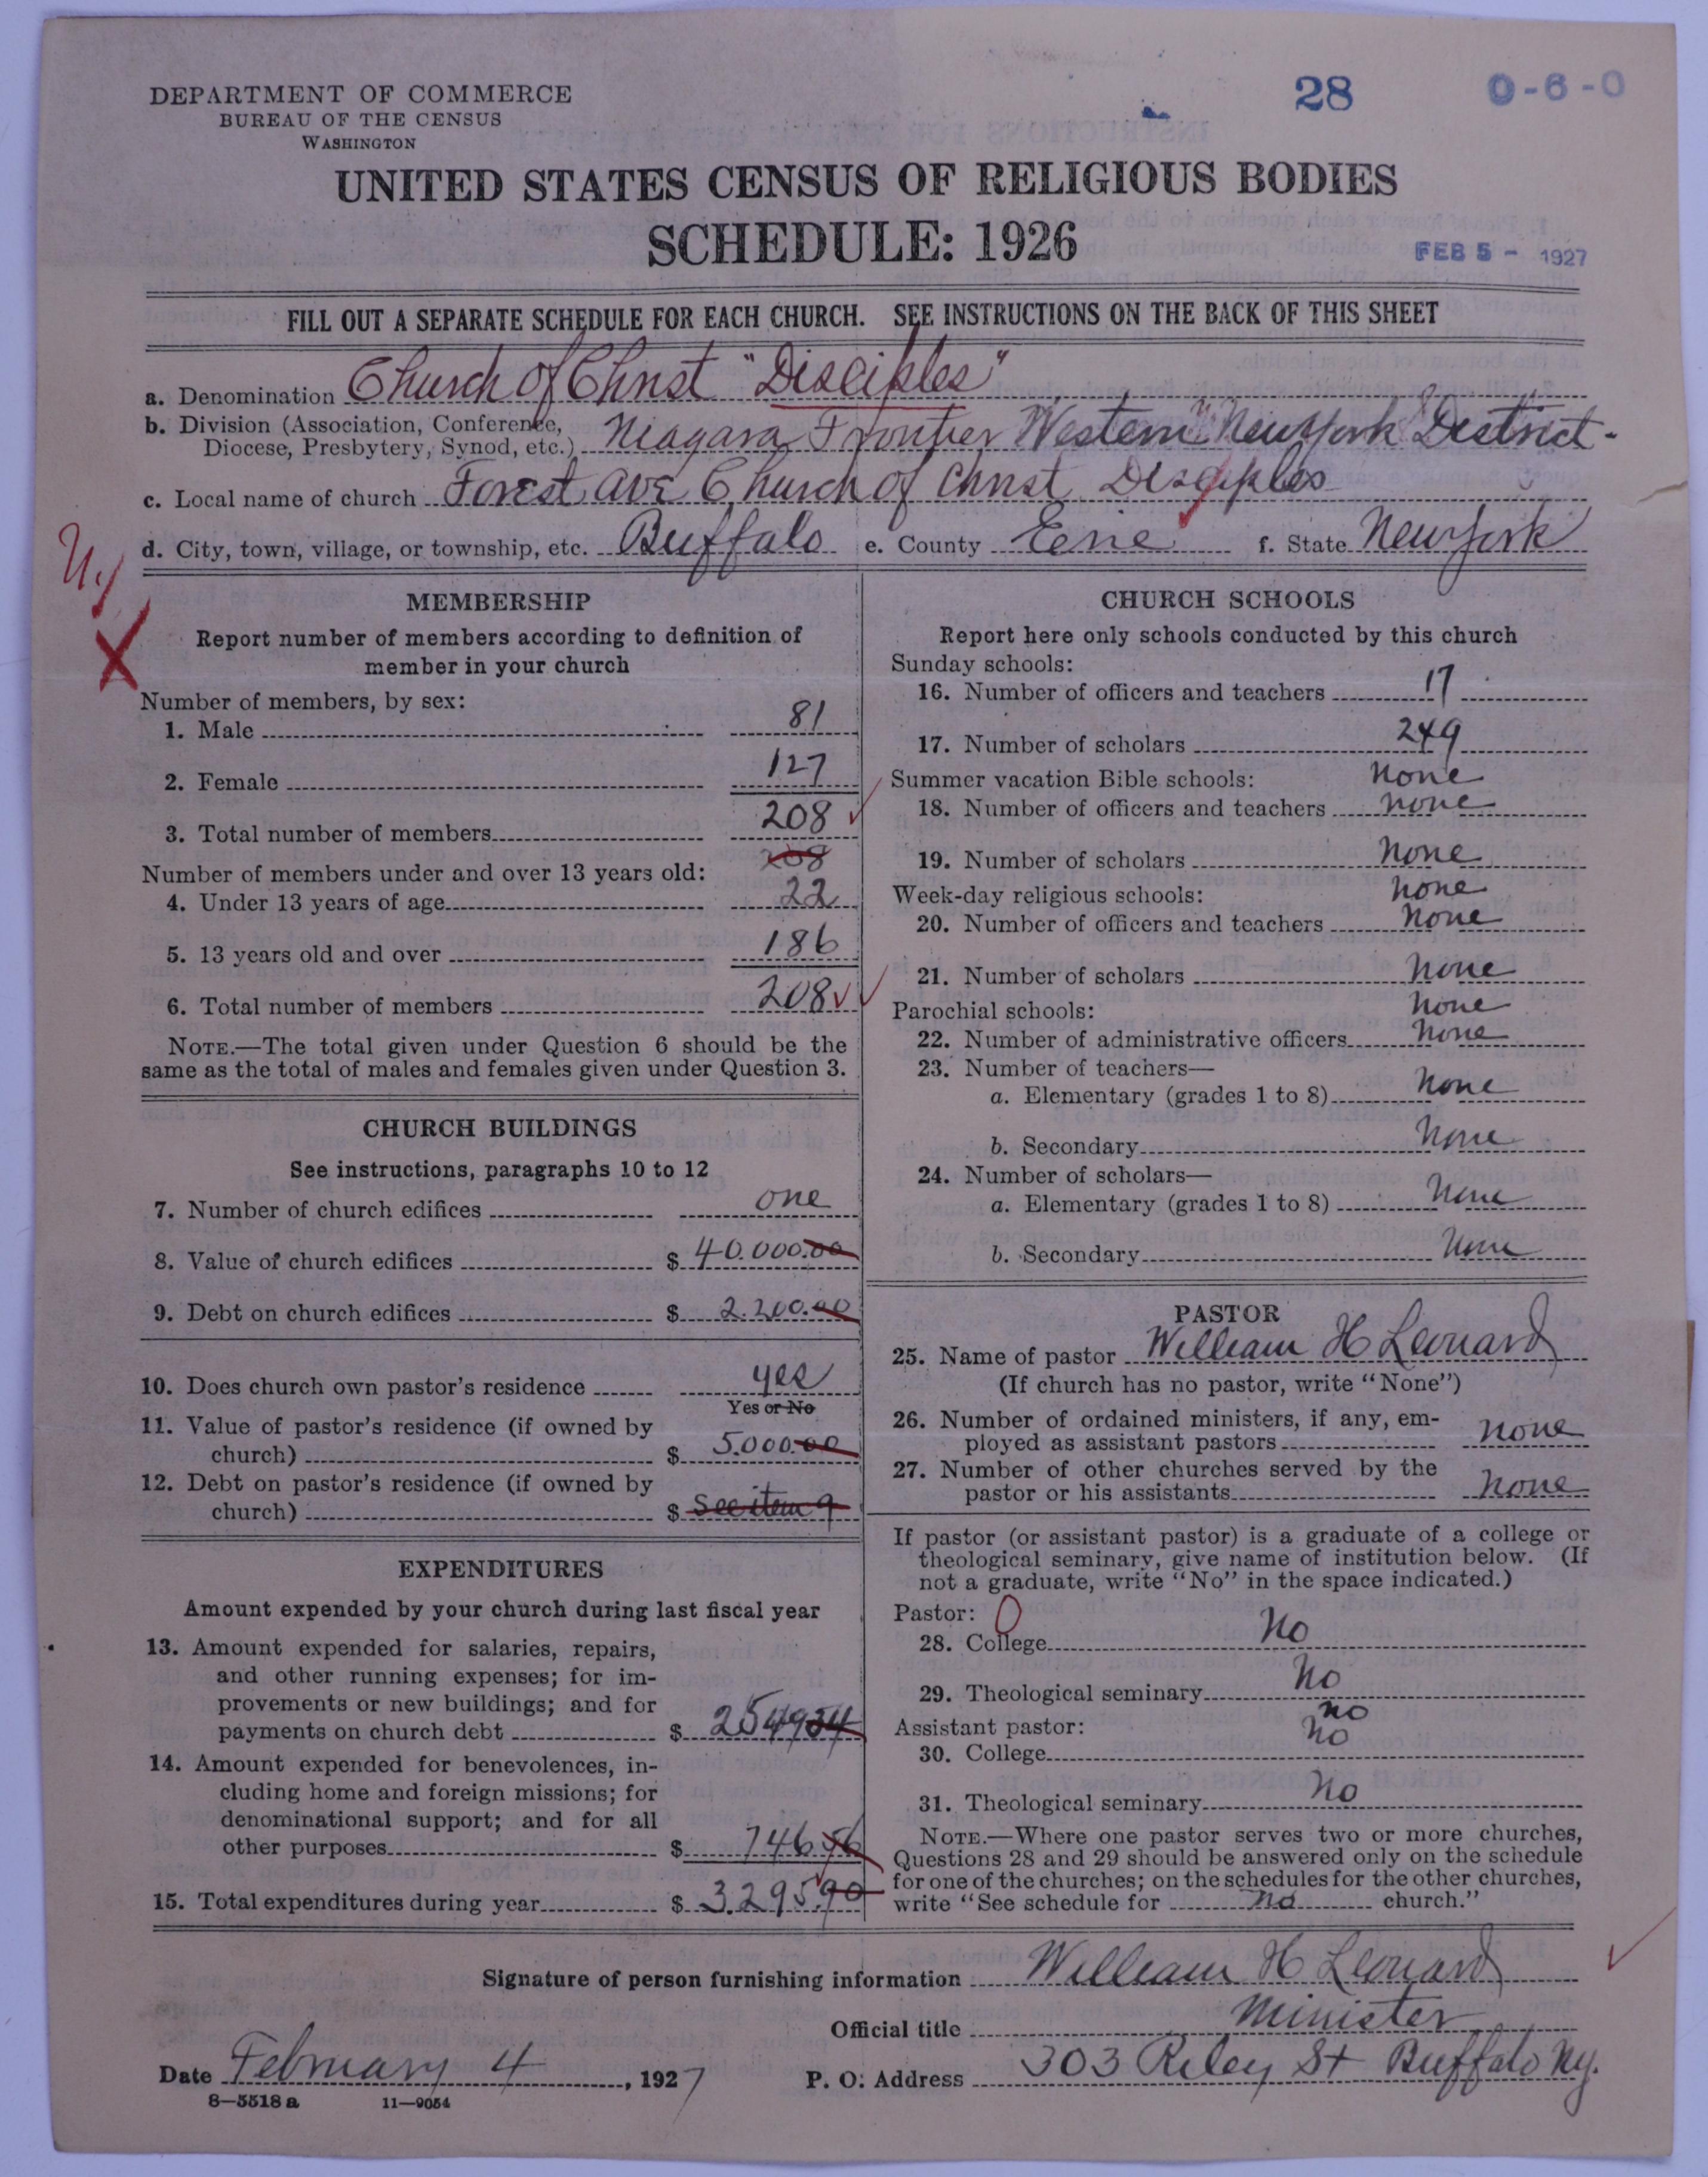 28
0-6-0
DEPARTMENT OF COMMERCE
BUREAU OF THE CENSUS
WASHINGTON
UNITED STATES CENSUS OF RELIGIOUS BODIES
SCHEDULE: 1926
FEB 5 - 1927
FILL OUT A SEPARATE SCHEDULE FOR EACH CHURCH. SEE INSTRUCTIONS ON THE BACK OF THIS SHEET
a. Denomination Church of Christ "Disciples"
b. Division (Association, Conference, Diocese, Presbytery, Synod, etc.) Niagara Frontier Western New York District-
c. Local name of church Forest Ave Church of Christ Disciples
d. City, town, village, or township, etc. Buffalo e. County Erie f. State New York
MEMBERSHIP
Report number of members according to definition of
member in your church
Number of members, by sex:
1. Male 81
2. Female 127
3. Total number of members 208
208
Number of members under and over 13 years old:
4. Under 13 years of age 22
5. 13 years old and over 186
6. Total number of members 208
NOTE.—The total given under Question 6 should be the
same as the total of males and females given under Question 3.
CHURCH BUILDINGS
See instructions, paragraphs 10 to 12
7. Number of church edifices one
8. Value of church edifices $ 40.000.00
9. Debt on church edifices $ 2.200.00
10. Does church own pastor's residence yes
Yes or No
11. Value of pastor's residence (if owned by
church) $ 5.000.00
12. Debt on pastor's residence (if owned by
church) $ See item 9
EXPENDITURES
Amount expended by your church during last fiscal year
13. Amount expended for salaries, repairs,
and other running expenses; for im-
provements or new buildings; and for
payments on church debt $ 2549 34
14. Amount expended for benevolences, in-
cluding home and foreign missions; for
denominational support; and for all
other purposes $ 746 56
15. Total expenditures during year $ 3.295 90
CHURCH SCHOOLS
Report here only schools conducted by this church
Sunday schools:
16. Number of officers and teachers 17
17. Number of scholars 249
Summer vacation Bible schools: None
18. Number of officers and teachers none
19. Number of scholars None
Week-day religious schools: None
20. Number of officers and teachers None
21. Number of scholars None
Parochial schools: None
22. Number of administrative officers None
23. Number of teachers—
a. Elementary (grades 1 to 8) None
b. Secondary None
24. Number of scholars—
a. Elementary (grades 1 to 8) None
b. Secondary None
PASTOR
25. Name of pastor William H Leonard
(If church has no pastor, write "None")
26. Number of ordained ministers, if any, em-
ployed as assistant pastors none
27. Number of other churches served by the
pastor or his assistants none
If pastor (or assistant pastor) is a graduate of a college or
theological seminary, give name of institution below. (If
not a graduate, write "No" in the space indicated.)
Pastor: 0
28. College No
29. Theological seminary No
no
Assistant pastor:
30. College No
31. Theological seminary No
NOTE.—Where one pastor serves two or more churches,
Questions 28 and 29 should be answered only on the schedule
for one of the churches; on the schedules for the other churches,
write "See schedule for no church."
Signature of person furnishing information William H Leonard
Official title Minister
Date February 4, 1927 P. O. Address 303 Riley St Buffalo Ny.
8—5518 a 11—9054